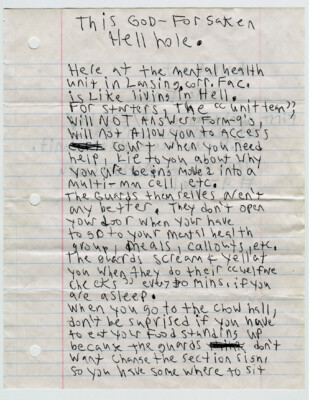 This GOD-Forsaken
Hell hole.
Here at the mental health
unit in Lansing corr. Fac.
is Like living in Hell.
For starters, The "unit team",
will NOT Answer Form-9's,
will not Allow you to access
court when you need
help, Lie to you about why
you are being moved into a
multi-man cell, etc.
The Guards themselves aren't
any better. They don't open
your door when you have
to go to your mental health
group, meals, callouts, etc.
The guards scream & yell at
you when they do their "welfare
checks" every mins. if you
are asleep.
When you go to the chow hall,
don't be suprised if you have
to eat your food standing up
because the guards don't
want change the section sign,
so you have some where to sit